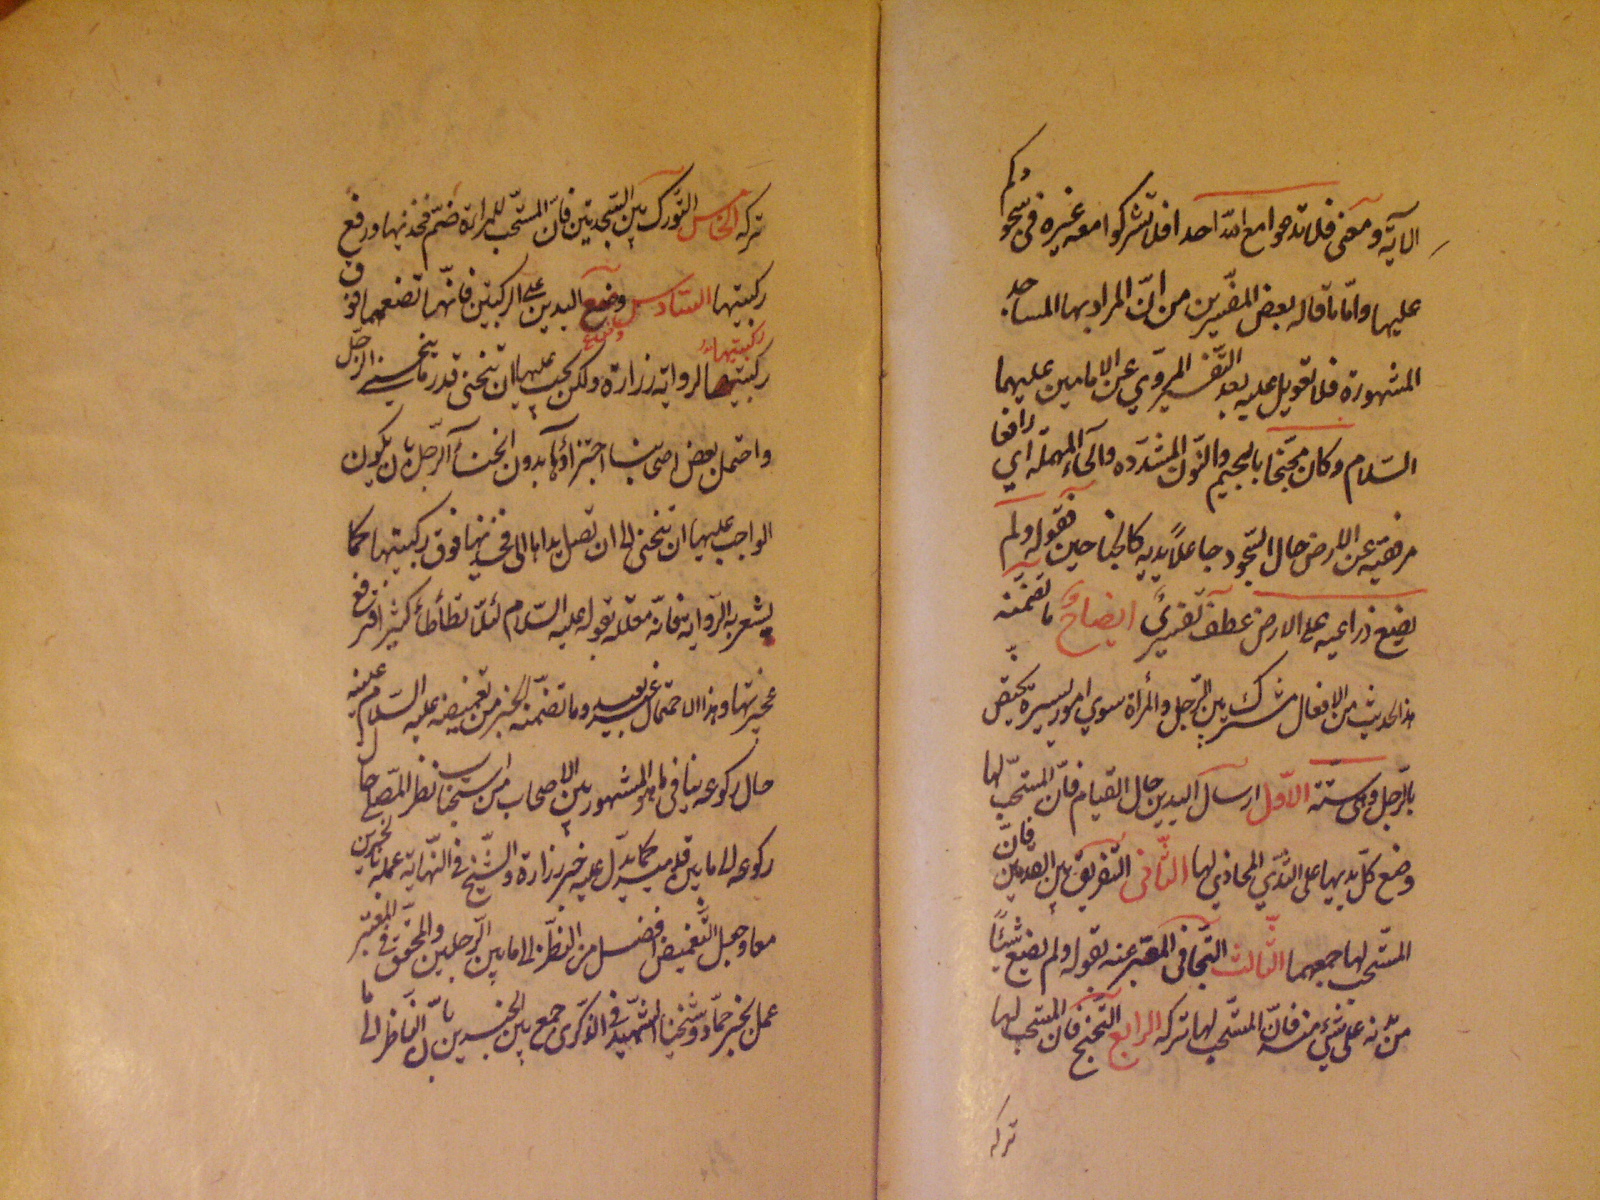 الآية ومعنى فلا تدعوا مع الله احدا فلا تشركوا معه غيره في سجودكم
عليها وامّا ما قاله بعض المفسّرين من انّ المراد بها المساجد
المشهورة فلا تعويل عليه بعد التّفسير المرويّ عن الامامين عليهما
السّلام وكان مجنّحا بالجيم والنّون المشدّده والحاء المهملة اي رافعا
مرفقيه عن الارض حال السّجود جاعلاً يديه كالجناحين فقوله ولم
يضع ذراعيه على الارض عطف تفسيريّ ايضاحٌ ما تضمّنه
هذا الحديث من الافعال مشترك بين الرّجل والمرأة سوي امور يسيرة يختصّ
بالرّجل وهى ستّة الاوّل ارسال اليدين حال القيام فانّ المستحبّ لها
وضع كلّ يديها على الثّدي المحاذي لها الثّانى التّفريق بين القدمين فانّ
المستحبّ لها جمعهما الثّالث التّجافى المعبّر عنه بقوله ولم يضع شيئاً
من بدنه على شئ منه فانّ المستحبّ لها تركه الرّابع التّجنّح فانّ المستحبّ لها
تركه
تركه الخامس التّورّك بين السّجدتين فانّ المستحبّ للمراة ضمّ فخذيها ورفع
ركبتيها السّادس وضع اليدين على الركبتين فانّها تضعهما فوق
ركبتيها لرواية زرارة ولكن يجب عليها ان تنحنى قدر ما ينحني الرّجل
ركبتيها
واحتمل بعض اصحابنا اجتزاؤها بدون انحناء الرّجل بان يكون
الواجب عليها ان تنحنى الى ان تصل يداها الى فخذيها فوق ركبتيها كما
يشعر به الرّواية فانّه معلّله بقوله عليه السّلام لئلّا تطأطأ كثيرا فترفع
عجيزتها وهذا الاحتمال غير بعيد وما تضمّنه الخبر من تغميضه عليه السّلام عينيه
حال ركوعه ينافى ما هو المشهور بين الاصحاب من استحباب نظر المصلّي حال
ركوعه الى ما بين قدميه كما يدلّ عليه خبر زرارة والشّيخ في النّهاية عمل بالخبرين
معا وجعل التّغميض افضل من النّظر الى ما بين الرّجلين والمحقّق في المعتبر
عمل بخبر حمّاد وشيخنا الشّهيد في الذكرى جمع بين الخبرين بانّ النّاظر الى ما